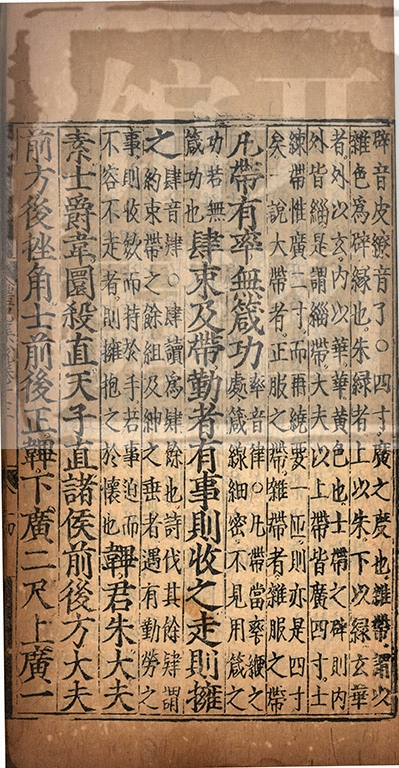 辟音皮繚音了○四寸廣之度也雜帶謂以
雜色為辟縁也朱緑者上以朱下以緑玄華
者外以玄內以華華黃色也士帶之辟則內
外皆緇是謂緇帶大夫以上帶皆廣四寸士
練帶惟廣二寸而再繞要一匝則亦是四寸
矣一說大帶者正服之帶雜帶者雜服之帶
凡帶有率無箴功率音律○凡帶當率緶之處箴線細密不見用箴之
功若無箴功也肆束及帶勤者有事則收之走則擁
之肆音肄○肆讀為肄餘也詩伐其餘肄謂約束帶之餘組及紳之垂者遇有勤勞之
事則收斂而持於手若事迫而不容不走者則擁抱之於懷也韠君朱大夫
素士爵韋圜殺直天子直諸侯前後方大夫
前方後挫角士前後正韠下廣二尺上廣一